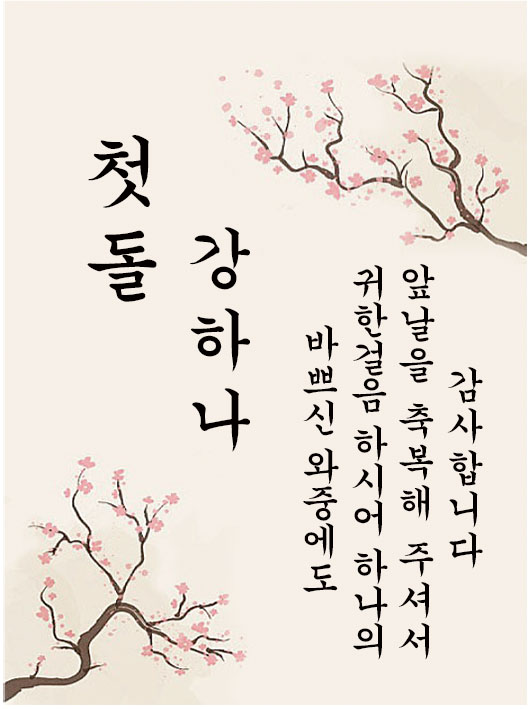 첫돌
강하나
바쁘신 와중에도
귀한걸음 하시어 하나의
앞날을 축복해 주셔서
감사합니다